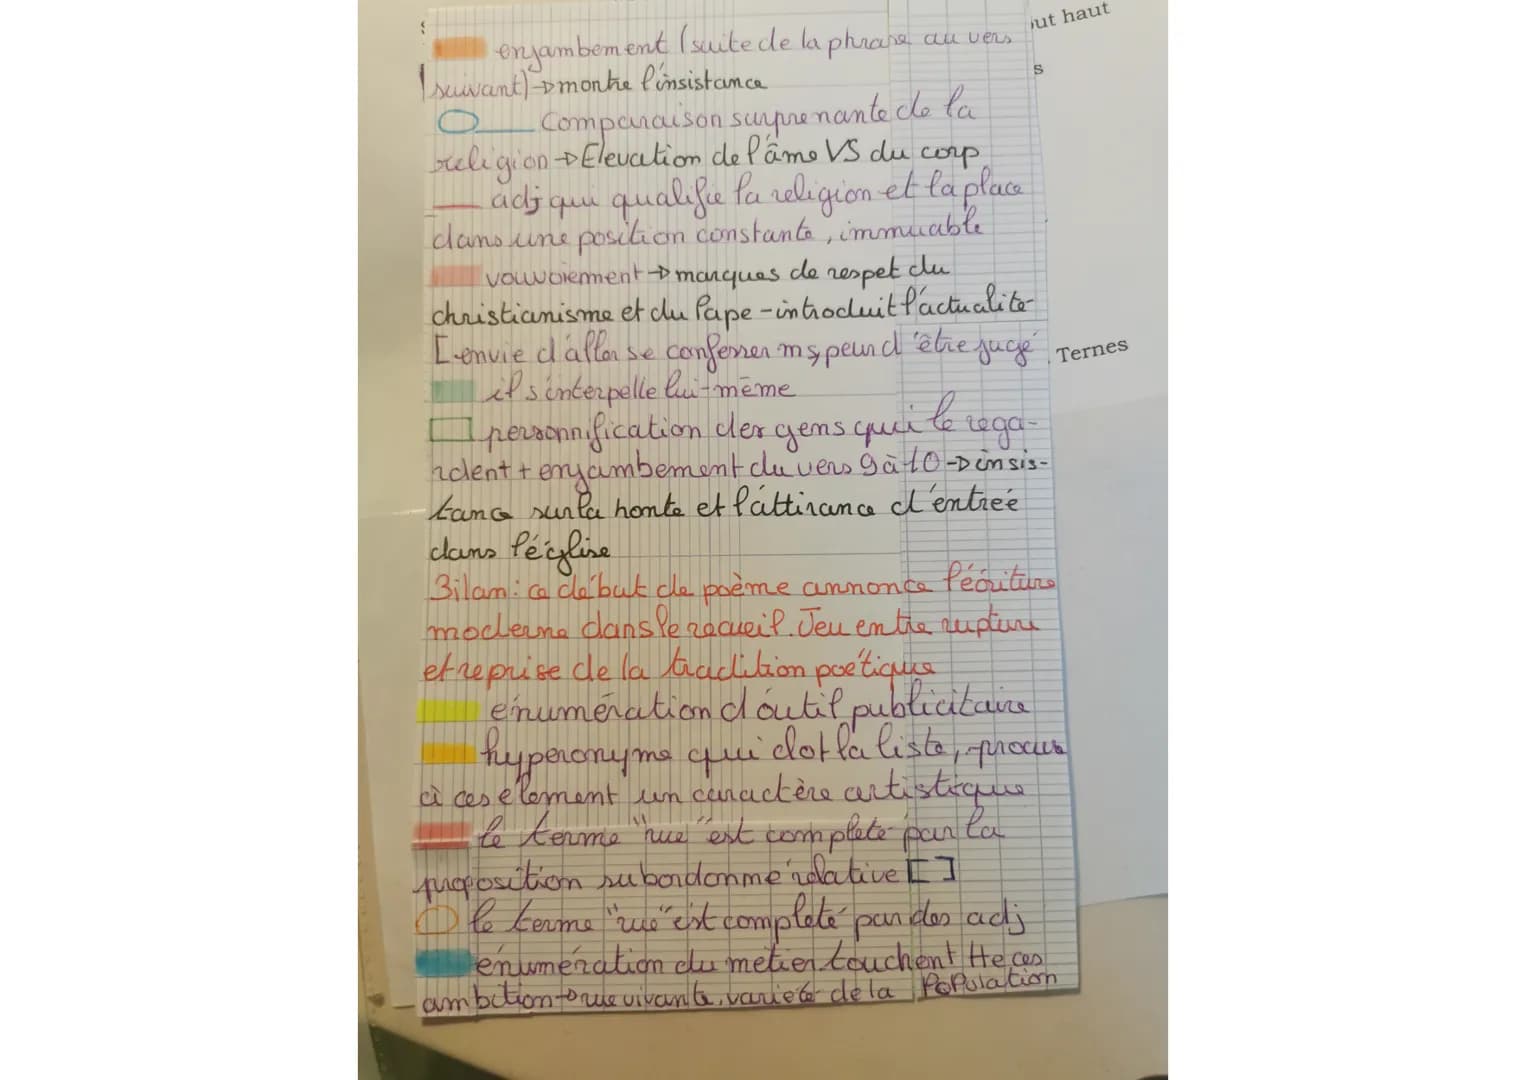 ut haut
enjambement (suite de la phrase au vers
s
suivant) → montre l'insistance
Comparaison surprenante de la
religion → Elevation de l'âme VS du corp
adj qui qualifie la religion et la place
dans une position constante, immuable
vouvoiement → marques de respet du
christianisme et du Pape - introduit l'actualité
[ envie d'aller se confesser ms peur d'être jugé
Ternes
il s'interpelle lui-même
personnification des gens qui le rega-
rdent + enjambement du vers 9 à 10 → insis-
tance sur la honte et l'attirance d'entrée
dans l'église
Bilan : ce début de poème annonce l'écriture
moderne dans le recueil. Jeu entre rupture
et reprise de la tradition poétique
énumération d'outil publicitaire
hyperonyme qui clot la liste, procure
à ces élement un caractère artistique
le terme "rue" est complété par la
proposition subordonné relative [ ]
le terme "rue" est complété par des adj
énumération du metier touchent tte ces
ambition → rue vivante, varieté de la PoPulation